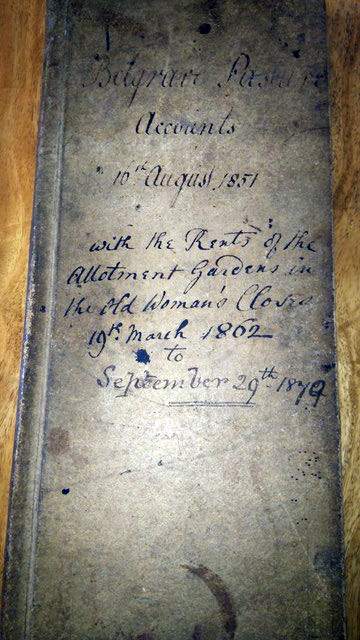 Belgrave Pasture
Accounts
16th August, 1851
with the Rents of the
Allotment Gardens in
the Old Woman's Closes
19th March 1862
to
September 29th 1879